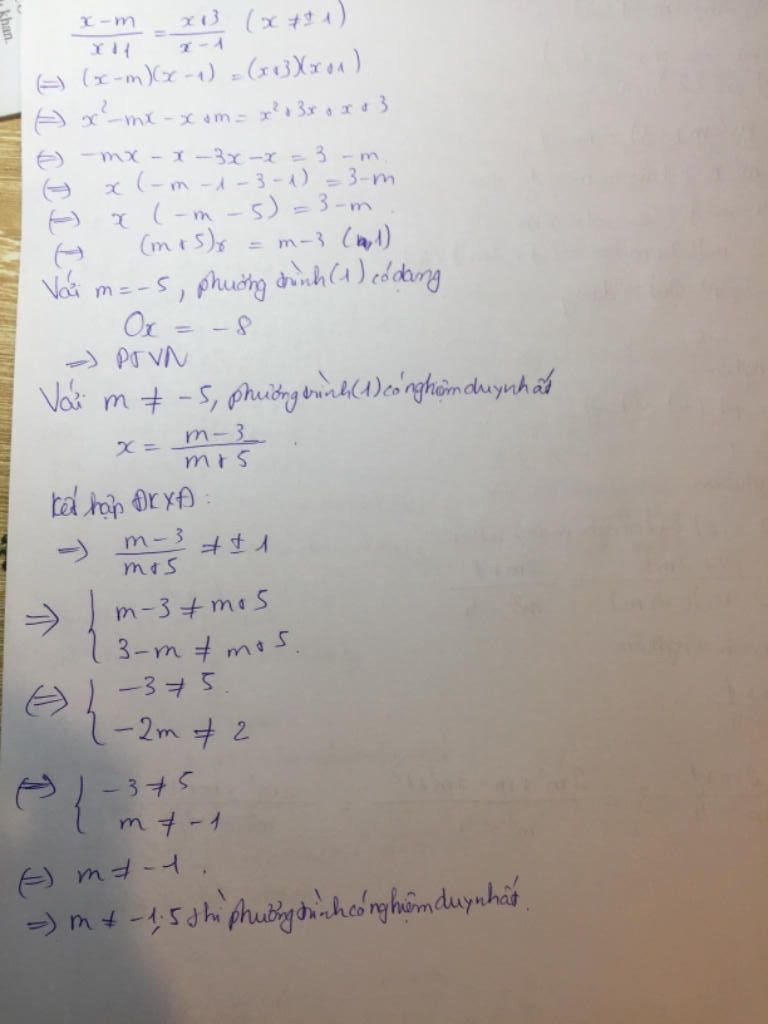 x-m/x+1 = x+3/x-1 (x ≠ ±1)
(=) (x-m)(x-1) = (x+3)(x+1)
(=) x² - mx - x + m = x² + 3x + x + 3
(=) -mx - x - 3x - x = 3 - m
(=) x (-m - 1 - 3 - 1) = 3-m
(=) x (-m - 5) = 3-m
(=) (m+5)x = m-3 (1)
Với m = -5, phương trình (1) có dạng
0x = -8
=> PTVN
Với m ≠ -5, phương trình (1) có nghiệm duy nhất
x = m-3/m+5
Kết hợp ĐKXĐ:
=> m-3/m+5 ≠ ±1
=> { m-3 ≠ m+5
3-m ≠ m+5.
(=) { -3 ≠ 5.
-2m ≠ 2
(=) { -3 ≠ 5
m ≠ -1
(=) m ≠ -1.
=> m ≠ -1; 5 thì phương trình có nghiệm duy nhất.